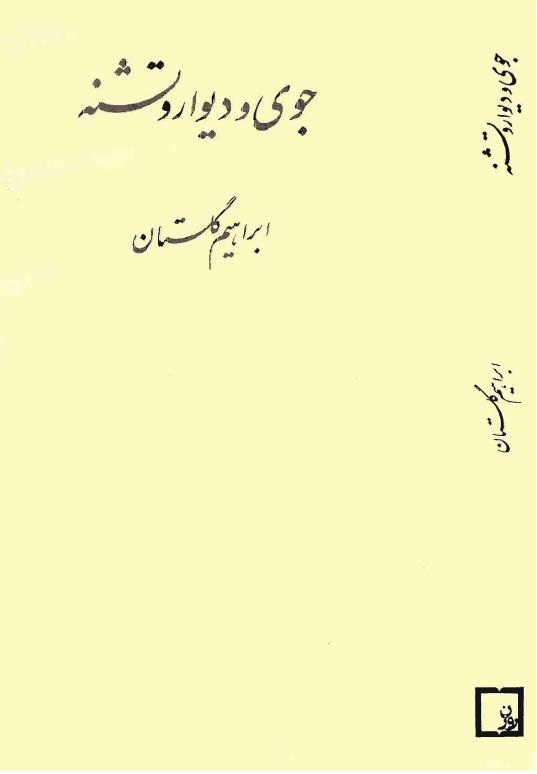 جوی و دیوار و تشنه
ابراهیم گلستان
جوی و دیوار و تشنه
ابراهیم گلستان
روزن